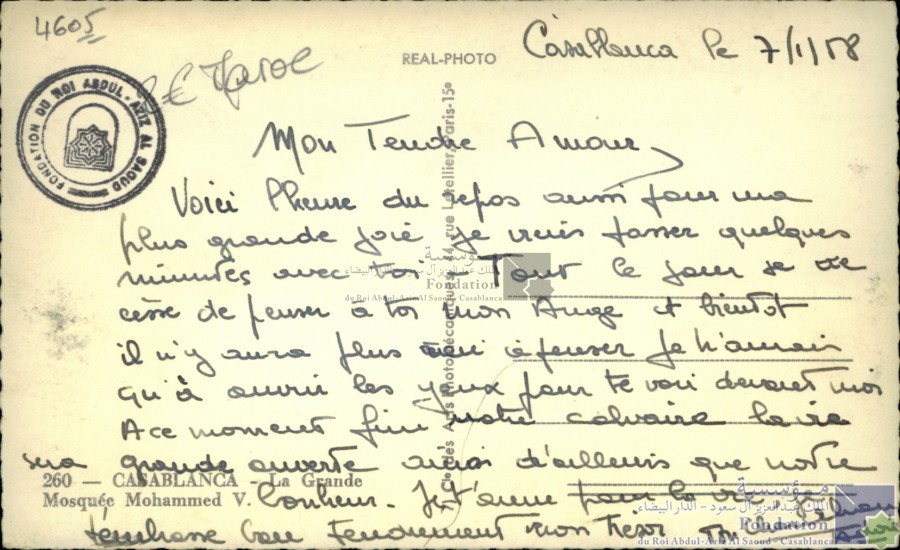 4605
Casablanca le 7/1/58
REAL-PHOTO
FONDATION DU ROI ABDUL-AZIZ AL SAOUD
Maroc
Mon Tendre Amour,
Voici l'heure du repos aussi pour ma
plus grande joie je viens passer quelques
minutes avec toi - Tout le jour je ne
cesse de penser a toi mon Ange et bientot
il n'y aura plus à penser je n'aurais
qu'à ouvrir les yeux pour te voir devant moi
A ce moment fini notre calvaire la vie
sera grande ouverte ainsi d'ailleurs que notre
bonheur. Je t'aime pour la vie
t'embrasse bien Tendrement mon Trésor
260 — CASABLANCA - La Grande
Mosquée Mohammed V.
Cie des Arts Photomécaniques, 44, rue Letellier, Paris-15e
مؤسسة
الملك عبد العزيز آل سعود - الدار البيضاء
Fondation
du Roi Abdul-Aziz Al Saoud - Casablanca
مؤسسة
الملك عبد العزيز آل سعود - الدار البيضاء
Fondation
du Roi Abdul-Aziz Al Saoud - Casablanca